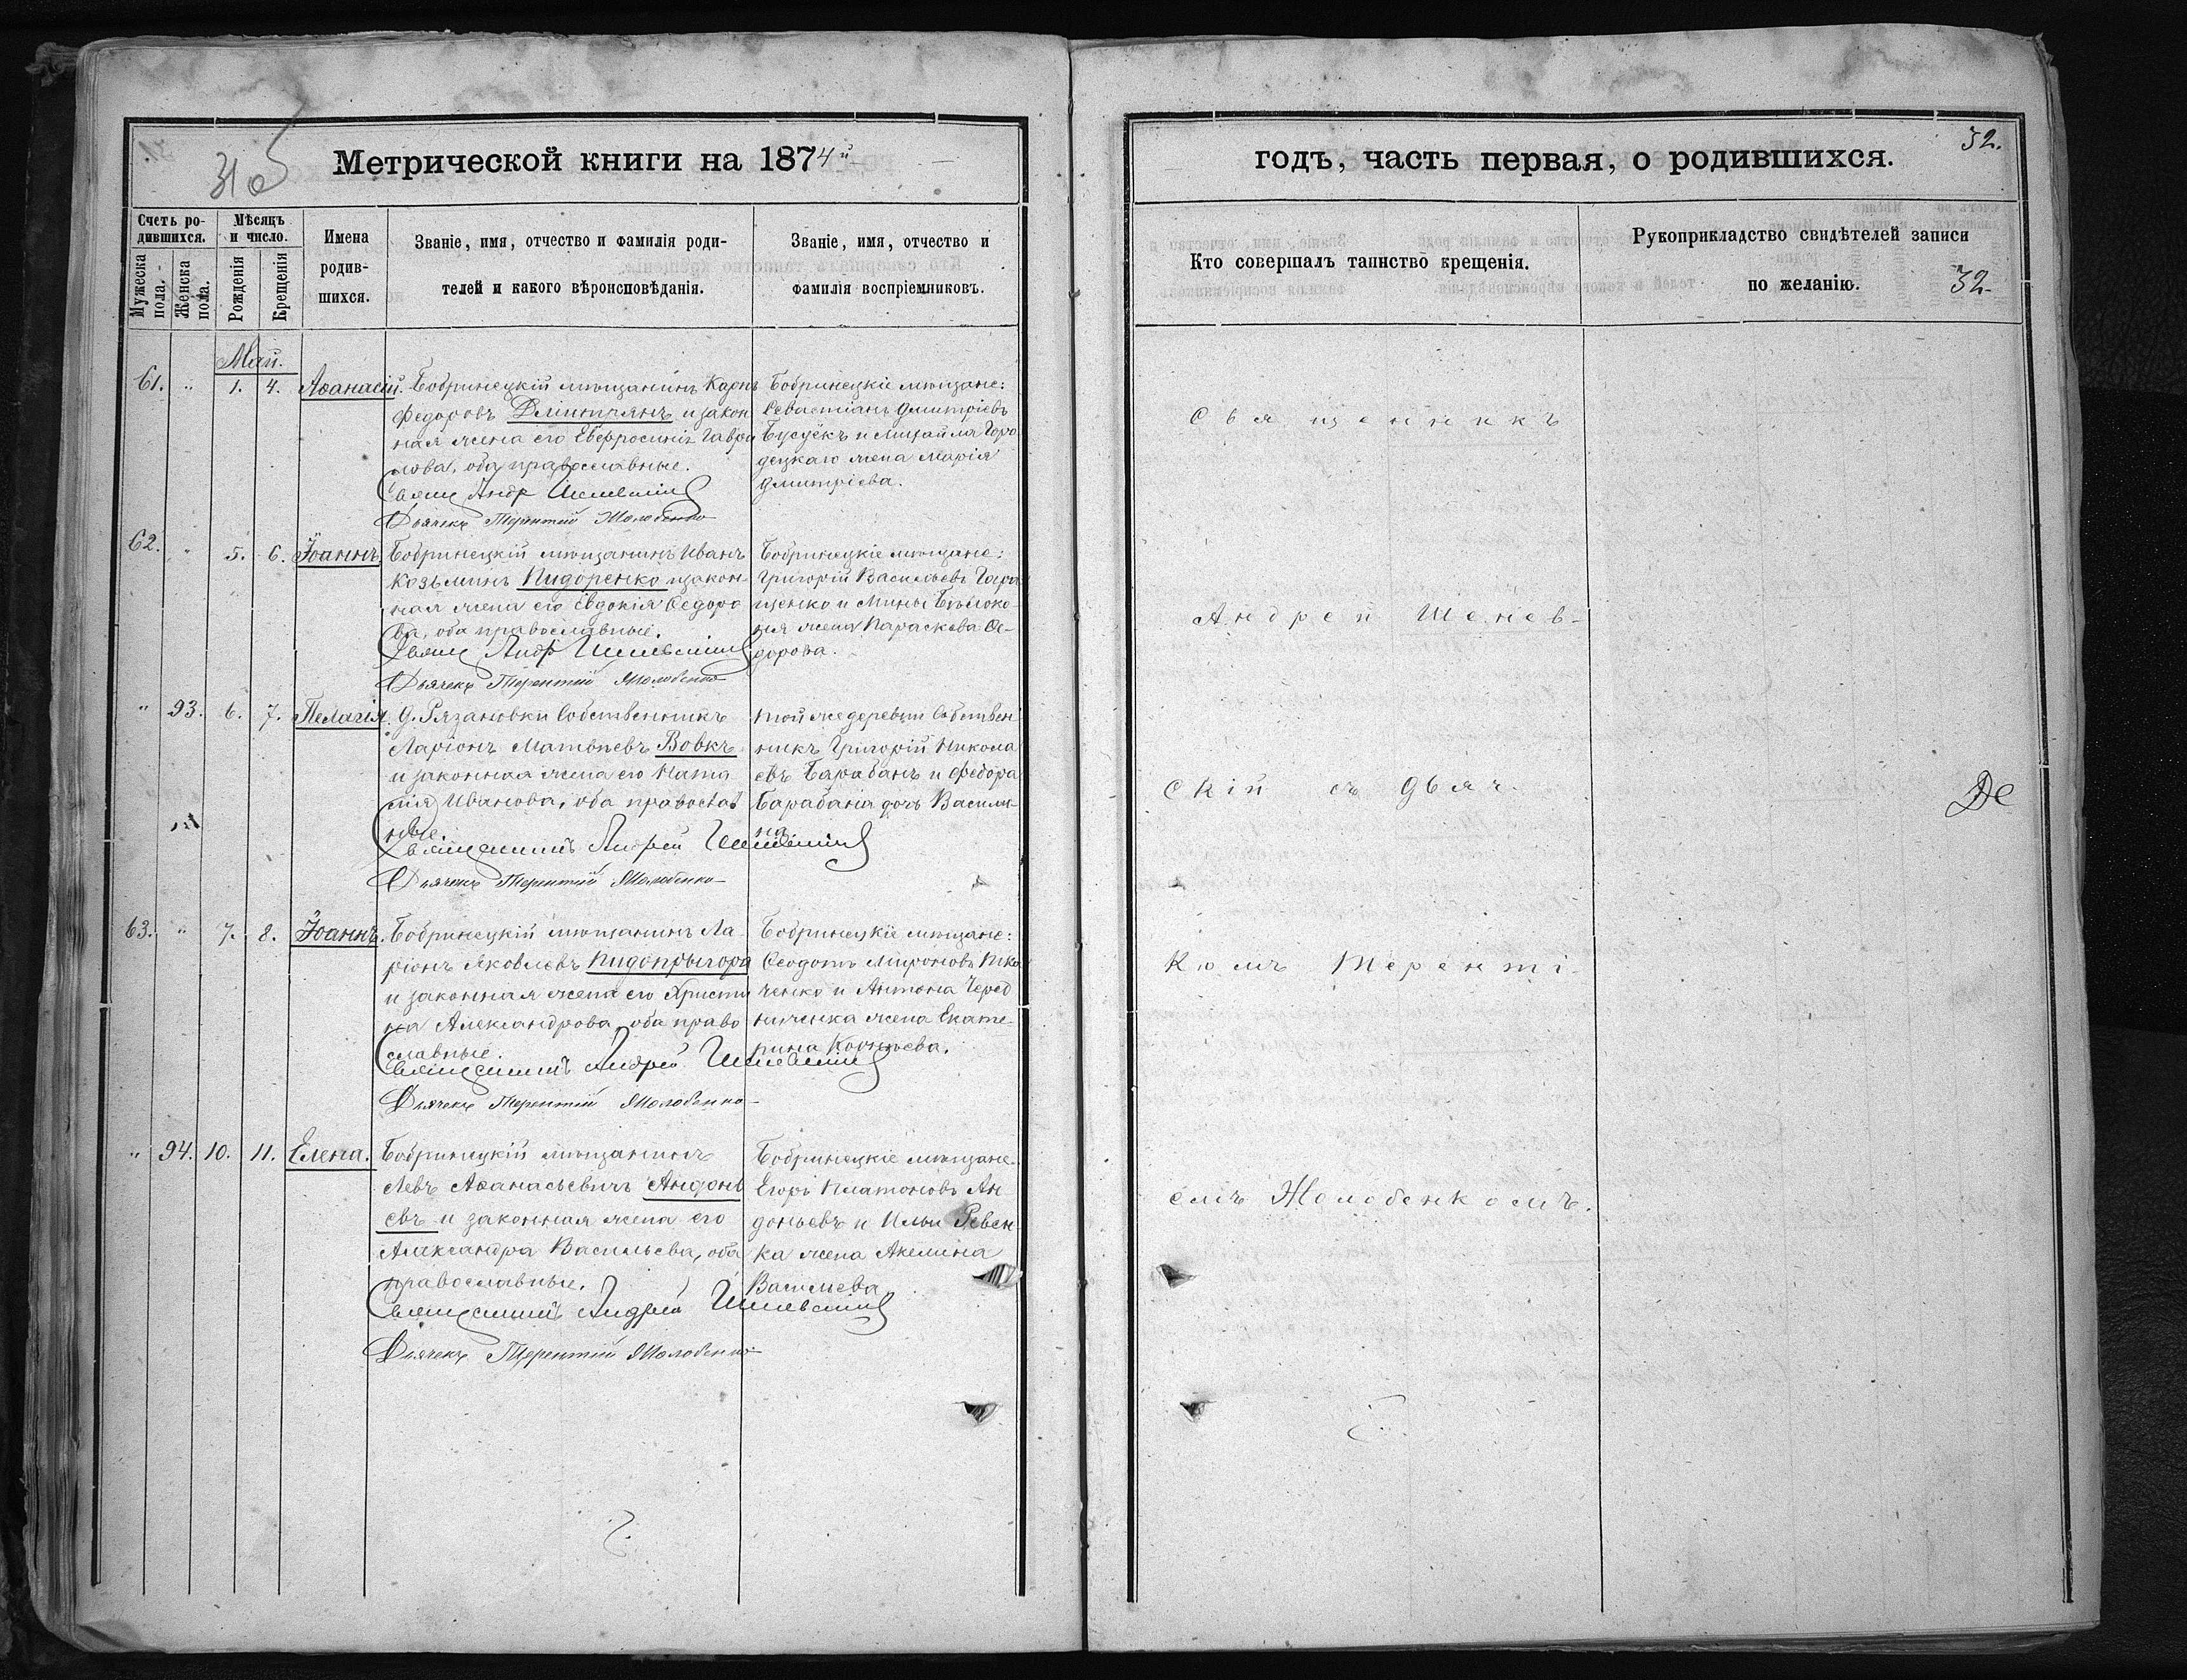 31 об
Метрической книги на 1874й
Счетъ ро-
дившихся.
Мужеска
пола.
Женска
пола.
Мѣсяцъ
и число.
Рожденія
Крещенія
Имена
родив-
шихся.
Званіе, имя, отчество и фамилія роди-
телей и какого вѣроисповѣданія.
Званіе, имя, отчество и
фамилія воспріемниковъ.
Май.
61. " 1. 4. Аѳанасій.
Бобринецкій мѣщанинъ Карпъ
Федоровъ и закон
ная жена его Евфросинія Гаври
лова, оба православные.
Свящ Андр Шеневскій
Дьячекъ Терентій Жолобенко
Бобринецкіе мѣщане:
Севастіанъ Дмитріевъ
и Михаила Горо
децкаго жена Марія
Дмитріева.
62. " 5. 6. Іоаннъ.
Бобринецкій мѣщанинъ Иванъ
Козьминъ Пидоренко и закон-
ная жена его Евдокія Ѳедоро
ва, оба православные.
Свящ Андр Шеневскій
Дьячекъ Терентій Жолобенко
Бобринецкіе мѣщане:
Григорій Васильевъ Гара
щенко и Мины Бѣлоко-
ня жена Параскева Ѳе-
дорова.
" 93. 6. 7. Пелагія.
д. Рязановки Собственникъ
Ларіонъ Матвѣевъ Вовкъ
и законная жена его Ната
лія Иванова, оба православ
ные.
Священникъ Андрей Шеневскій
Дьячекъ Терентій Жолобенко
той же деревни Собствен
никъ Григорій Никола
евъ Барабанъ и Федора
Барабана дочь Васили-
на
63. " 7. 8. Іоаннъ.
Бобринецкій мѣщанинъ Ла-
ріонъ Яковлевъ Пидопрыгора
и законная жена его Христи
на Александрова, оба право
славные.
Священникъ Андрей Шеневскій
Дьячекъ Терентій Жолобенко
Бобринецкіе мѣщане:
Ѳеодотъ Мироновъ
ченко и Антона Черед
ниченка жена Екате-
рина
" 94. 10. 11. Елена.
Бобринецкій мѣщанинъ
Левъ Аѳанасьевичъ Андонь
евъ и законная жена его
Александра Васильева, оба
православные.
Священникъ Андрей Шеневскій
Дьячекъ Терентій Жолобенко
Бобринецкіе мѣщане
Егоръ Платоновъ Ан-
доньевъ и Ильи Ревен
ка жена Акелина
Васильева
годъ, часть первая, о родившихся.
32.
Кто совершалъ таинство крещенія.
Рукоприкладство свидѣтелей записи
по желанію.
32
Священникъ
Андрей Шенев-
скій съ Дьяч-
комъ Теренті-
емъ Жолобенкомъ.